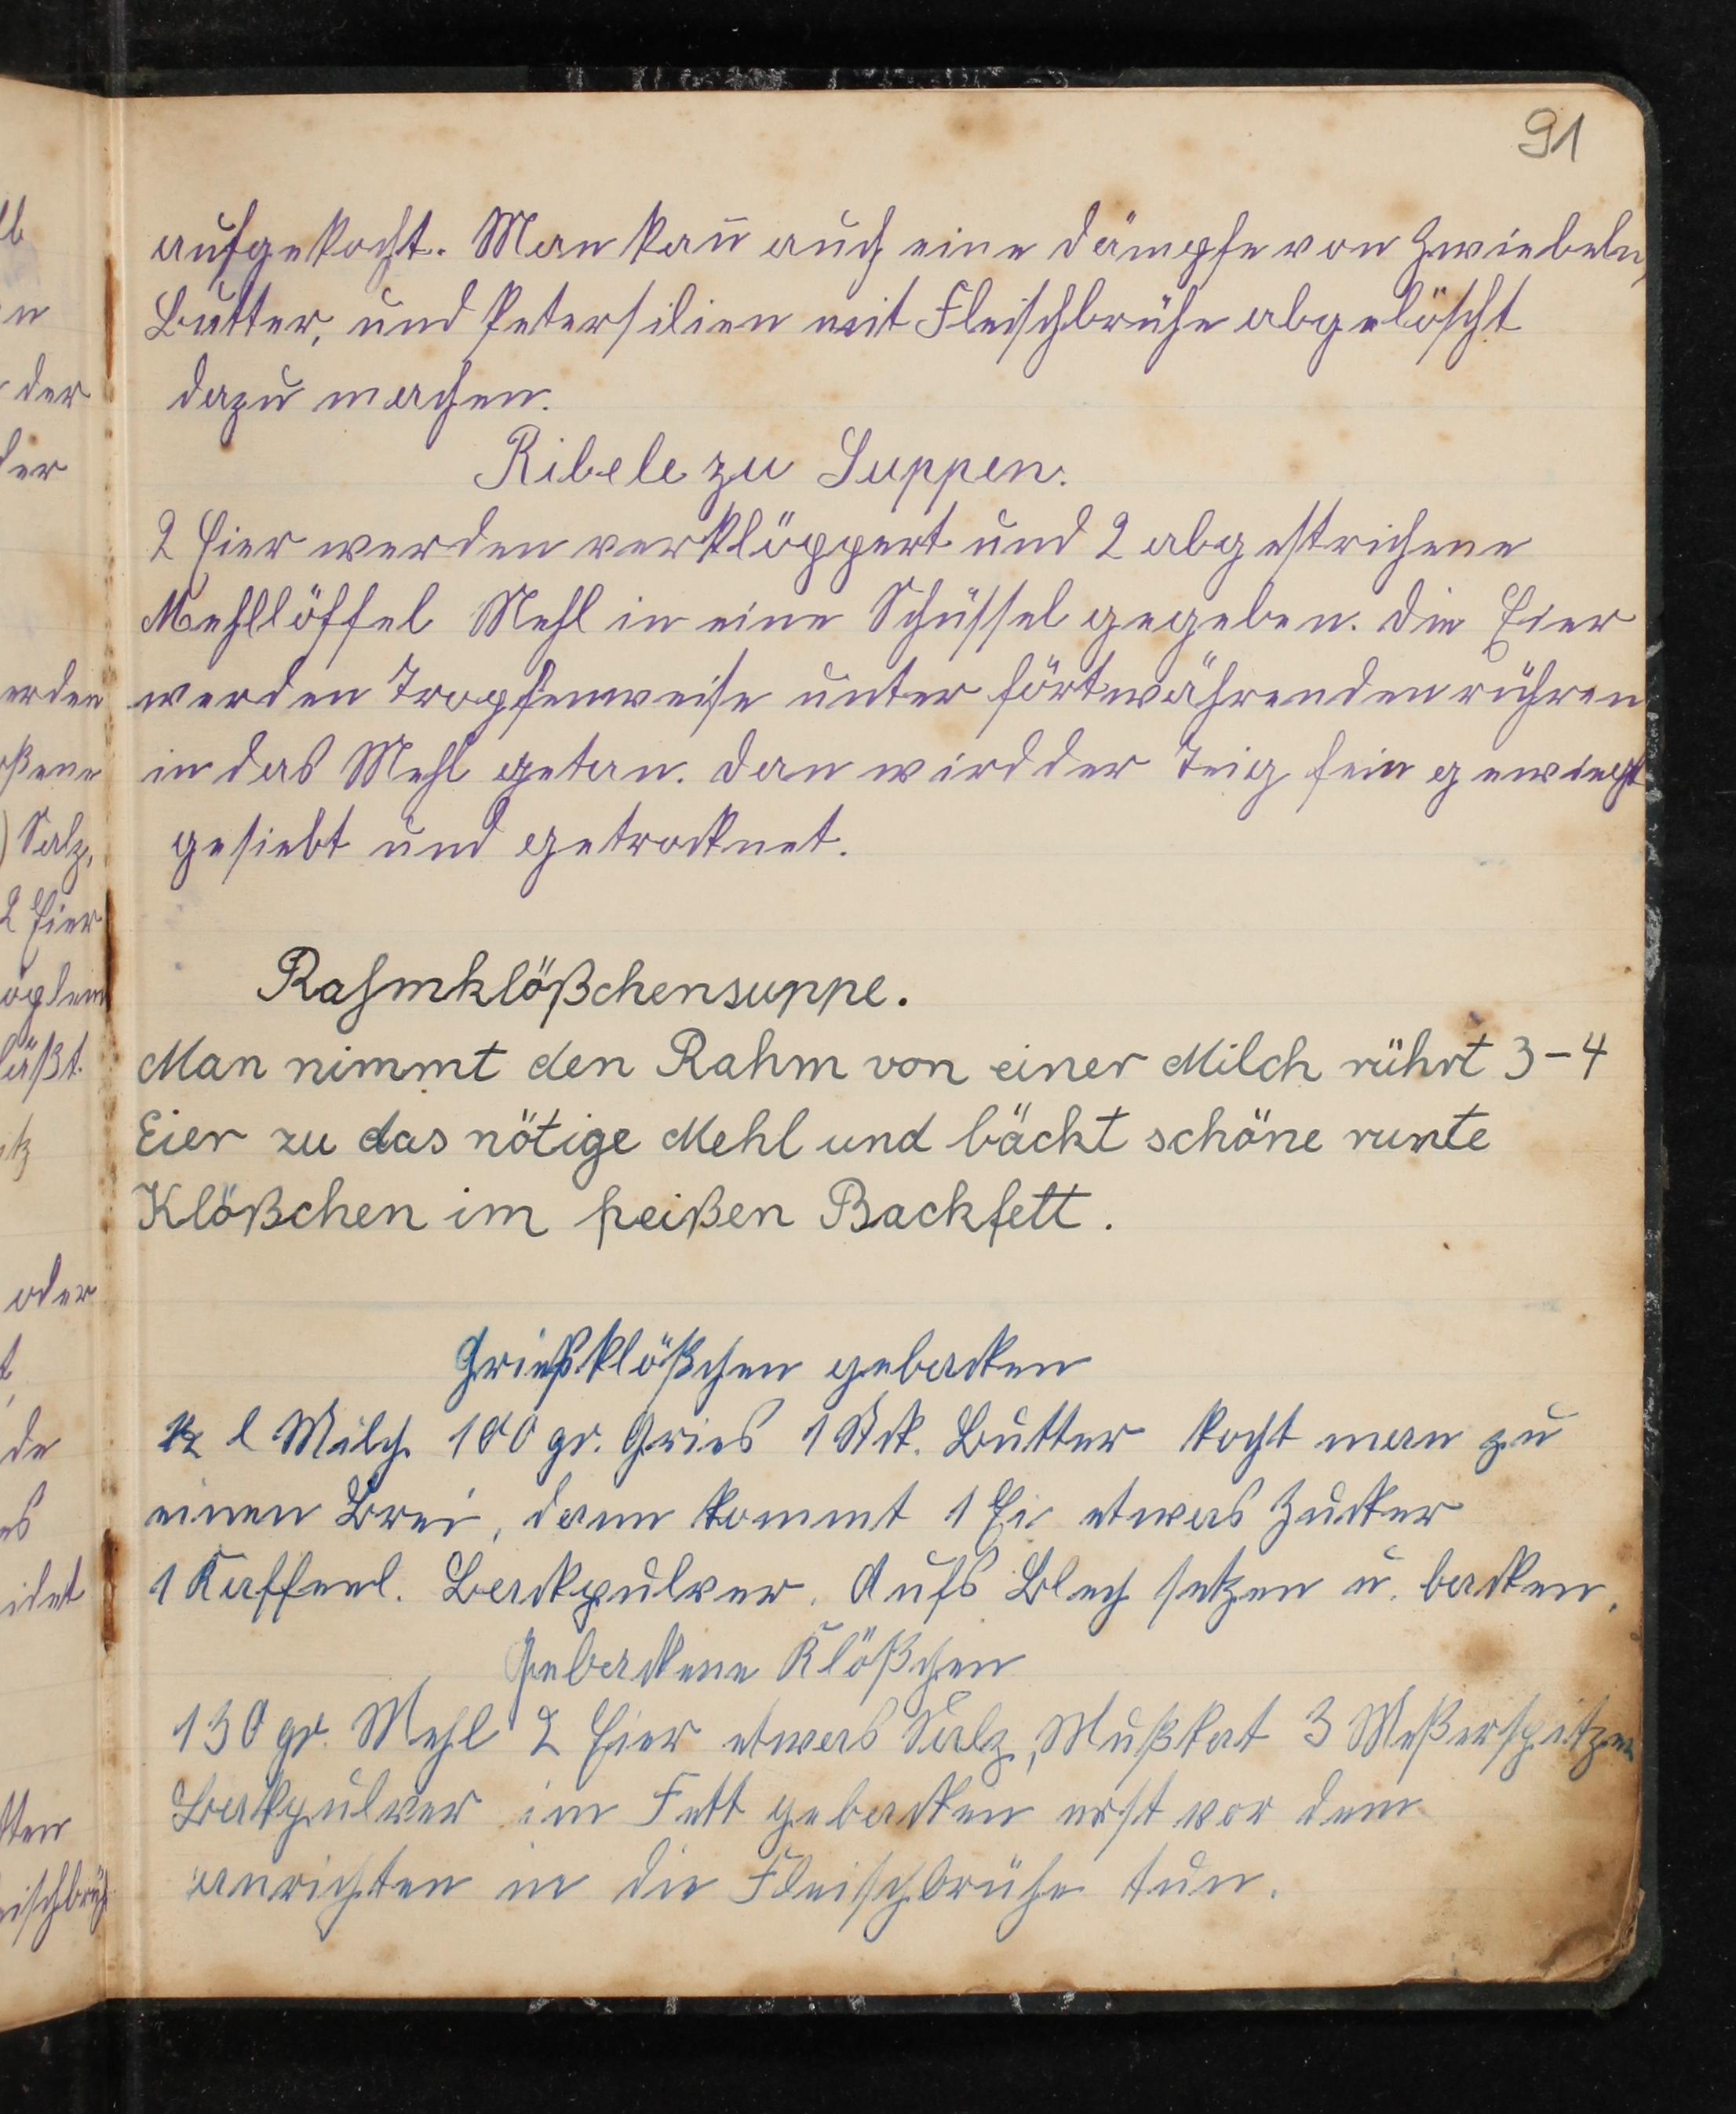 91
lb
aufgekocht. Man kan̄ auch eine dämpfe von Zwiebeln,
n
Butter, und Petersilien mit Fleischbrühe abgelöscht
der
dazu machen.
der
Ribele zu Suppen.
2 Eier werden verklöppert und 2 abgestrichene
Mehllöffel Mehl in eine Schüssel gegeben. die Eier
erden
werden Tropfenweise unter förtwährenden rühren
oßene
in das Mehl getan. dan wird der Teig fein gewiegt
) Salz,
gesiebt und getrocknet.
2 Eier
Rahmklößchensuppe.
läßt.
Man nimmt den Rahm von einer Milch rührt 3-4
itz
Eier zu das nötige Mehl und bäckt schöne runte
Klößchen im heißen Backfett.
oder
Grießklößchen gebacken
de
½ l Milch 100 gr. Gries 1 Stk. Butter kocht man zu
es
einen Brei, dann kommt 1 Ei etwas Zucker
idet
1 Kaffeel. Backpulver. Aufs Blech setzen u. backen.
Gebackene Klößchen
130 gr. Mehl 2 Eier etwas Salz, Mußkat 3 Meßerspitzen
tten
Backpulver im Fett gebacken erst vor dem
eischbrüh
anrichten in die Fleischbrühe tun.